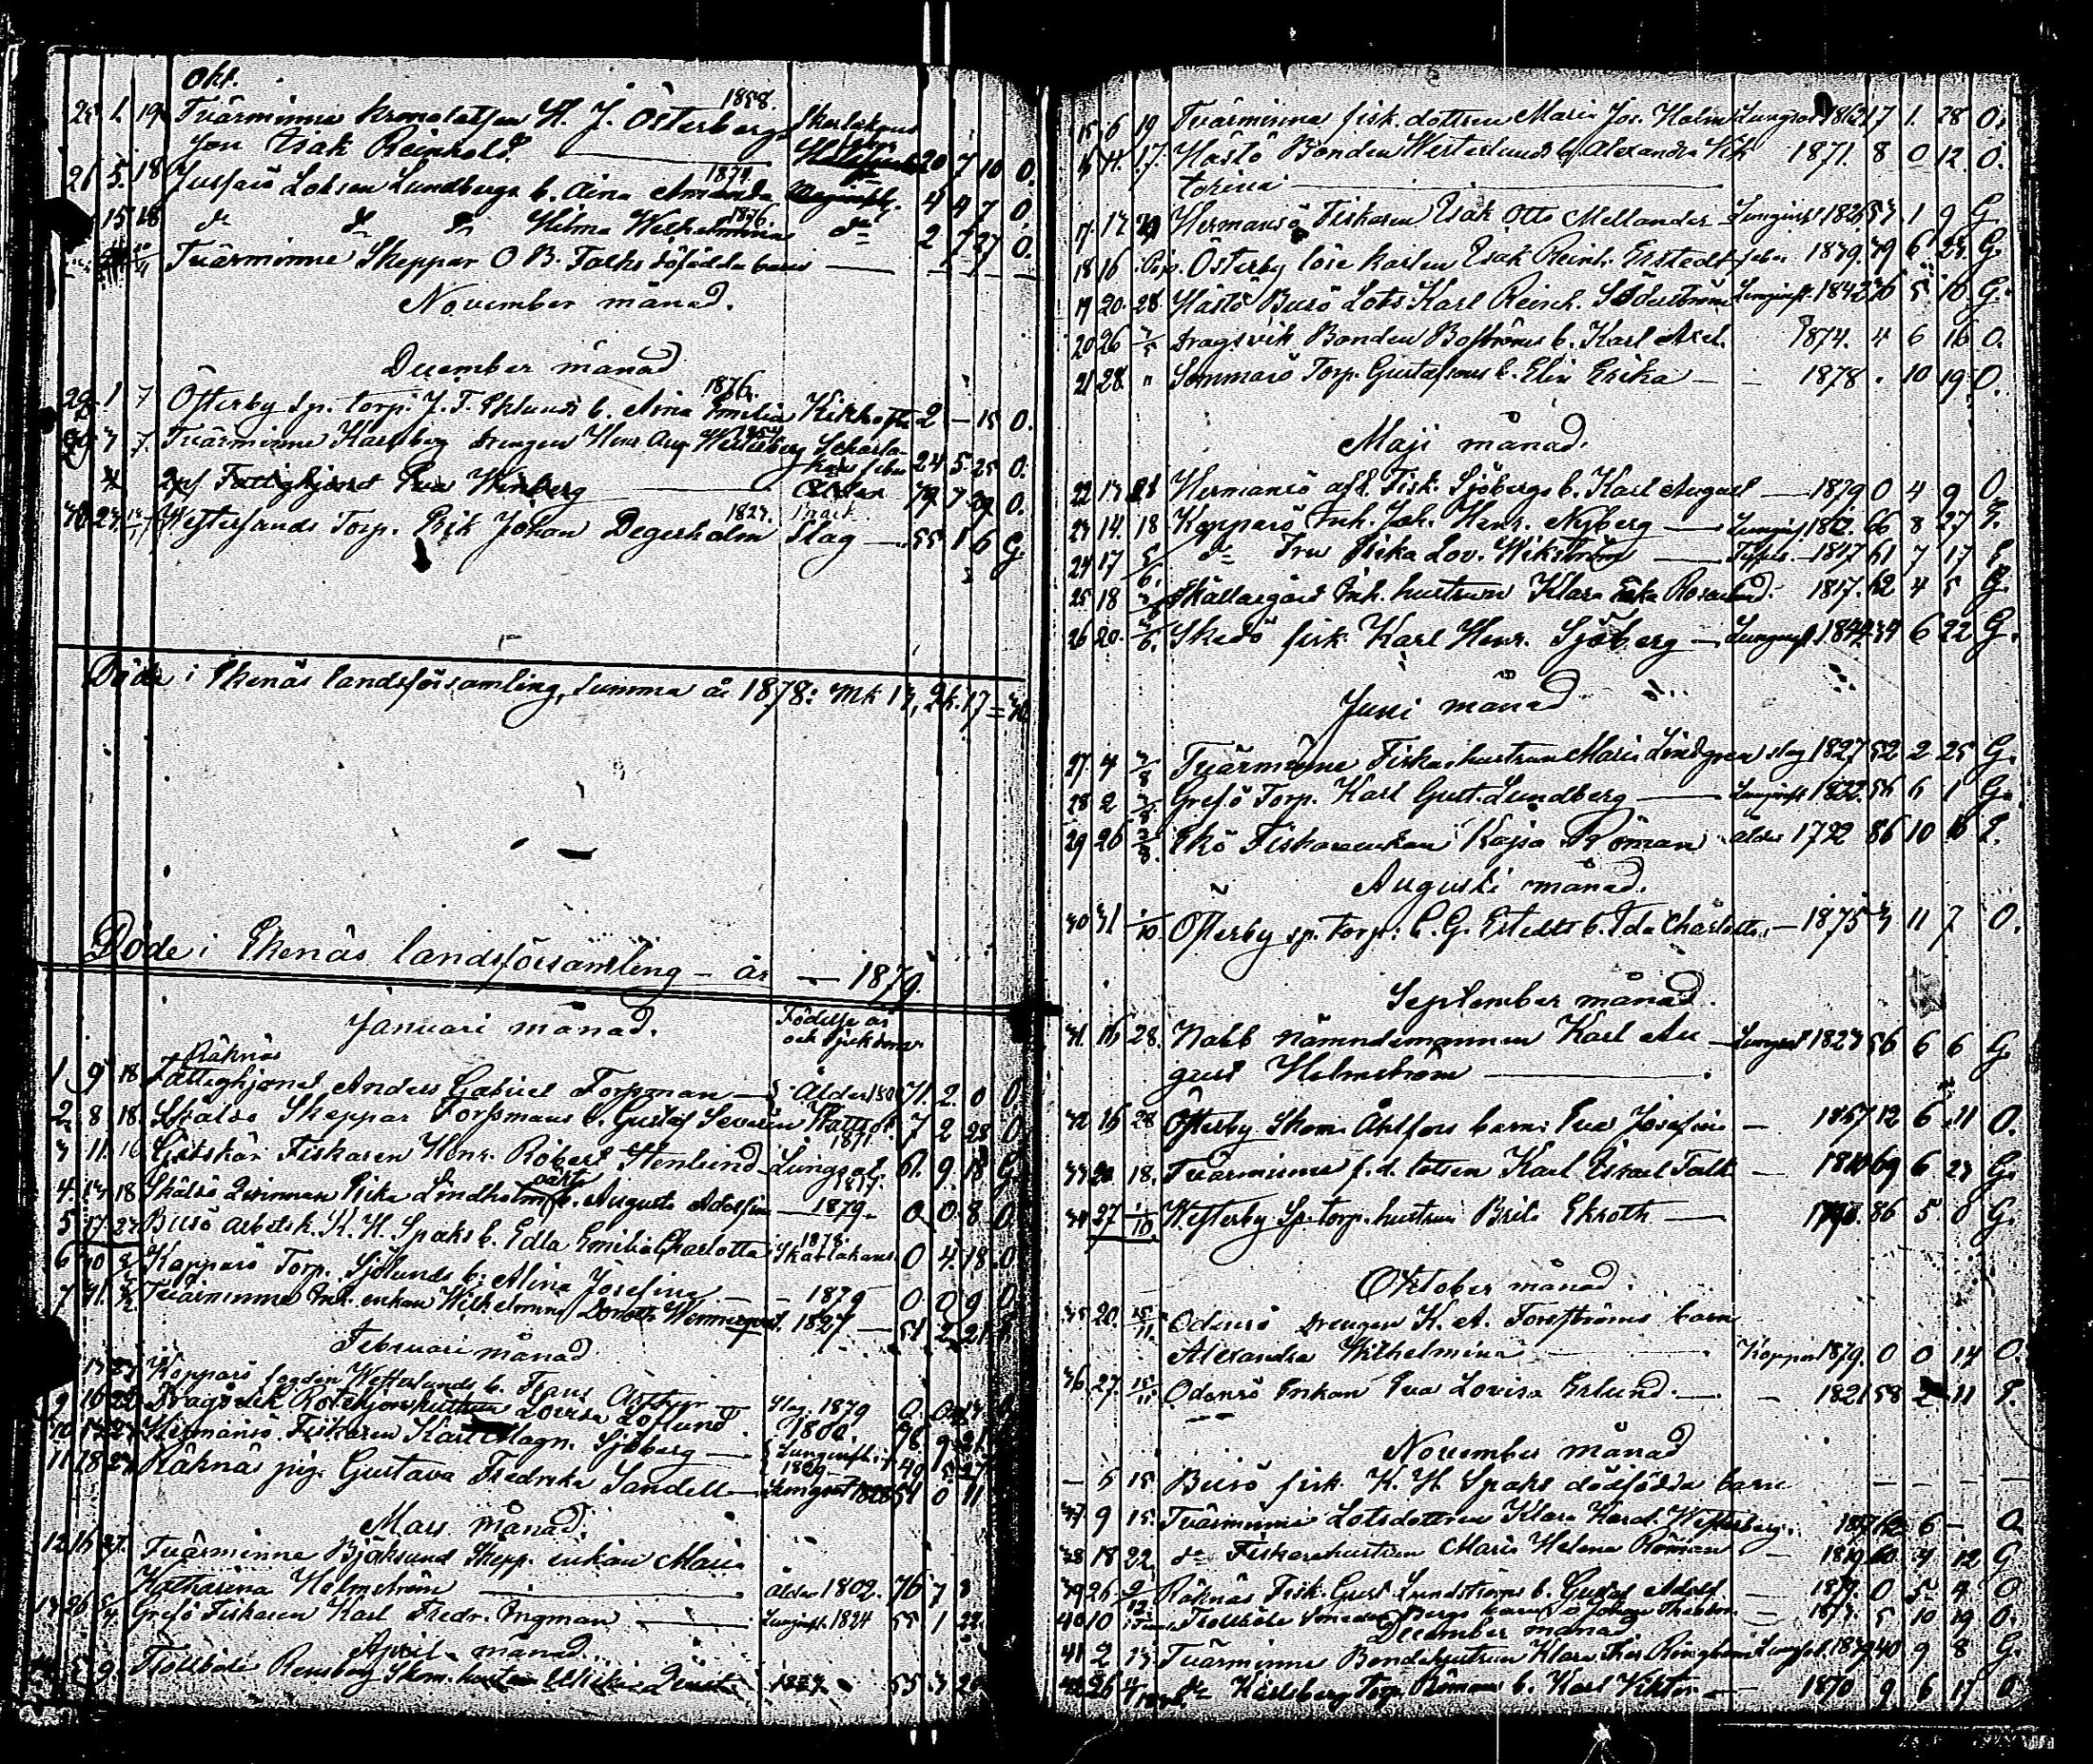 Okt.
25 1. 19 Tvärminne kronolotsen H. J. Österbergs 1858. Skarlakans
son Isak Reinhold. — 20 7 10 O.
26 5. 18 Jussarö Lotsen Lundbergs b. Aina Amanda 1874. 4 4 7 O
15 18 d:o d:o d:o Hilma Wilhelmina 1876. d:o 2 7 27 O.
Tvärminne Skeppar O B. Falks döfödda barn — — — —
November månad.
December månad
28. 1 7 Österby sp. torp. J. F. Eklunds b. Aina Emilia 1876. Kikhosta 2 — 15 O.
29 3 7. Tvärminne Karlsberg drengen Henr. Aug. Westerberg 1854 Scharla-
kans feber 24 5 25 O.
Fattighjonet Eva Winberg — Ålder 7 O.
30. 23 Westersunds Torp. Erik Johan Degerholm 1823. Slag — 55 1 6 G
Döde i Ekenäs landsförsamling, summa år 1878: Mk 13, Qk. 17 = 30
Döde i Ekenäs landsförsamling — år — 1879.
Januari månad. Födelse år
och sjukdomar
Råknäs
1 9 18 Fattighjonet Anders Gabriel Torpman — Ålder 71. 2 0 O
2 8 18 Skåldö Skeppar Torpmans b. Gustaf Severin 1871 7 2 28 O
3 11. 16 Gåtskär Fiskaren Henr. Robert Stenlund Lungsot. 1817. 61. 9. 18 G.
4. 13 18 Skåldö Qvinnan Erika Lindholms oäkta b. Augusta Adolfina — 1879. 0 0 8 O
5 17. 23 Busö arbetsk. K. H. Spaks b. Edla Emilia Charlotta 1878. Skarlakans 0 4. 18 O
6 30 Kopparö Torp. Sjölunds b. Alina Josefina — 1879 0 0 9 O
7 31. Tvärminne Inh. enkan Wilhelmina Doroth. Wennerqvist. 1827 — 51 2 21
Februari månad
13 23 Kopparö fogden Westerlunds b. Frans Arthur Slag 1879 0
9 16 22 Dragsvik Rotehjonshustrun Lovisa Löflund. 1800. 78 9 21
10 17 23 Hermansö Fiskaren Karl Magn. Sjöberg — Lunginfl. 1829 49
11 18 23 Råknä pig. Gustava Fredrika Sandell — Lungsot 0 11
Mars månad.
12 16 27. Tvärminne Björksund Skepp. enkan Maria
Katharina Holmström — ålder 1802. 76 7 8
13 26 Grefsö Fiskaren Karl Fredr. Ingman — Lunginfl. 1824 55 1 22.
April månad.
9. Trollböle Rensberg Skom. 55 3
15 6 19 Tvärminne fisk. dottren Maria Jos. Holm Lungsot 1862 17 1. 28 O.
16 11. 17. Hästö Bonden Westerlunds b. Alexandra Vik 1871. 8 0 12 O.
torina —
17. 13 29 Hermansö Fiskaren Isak Otto Mellander Lunginfl. 1826 53 1 9 G.
18 16 Österby löse karlen Isak Reinh. Ekstedt feber 1839. 39 6 23. G.
19 20. 28 Hästö Busö Lots Karl Reinh. Söderström Lunginfl. 1842 36 5 10 G.
20 26 Dragsvik Bonden Boströms b. Karl Axel. 1874. 4 6 16 O.
21 28. " Sommarö Torp. Gustafssons b. Elin Erika — 1878 . 10 19 O.
Maji månad.
22 13 28 Hermansö afl. Fisk. Sjöbergs b. Karl August — 1879 0 4 9 O.
23 14. 18 Kopparö Inh. Joh. Henr. Nyberg — Lunginfl. 1812. 66 8 27 E.
24 17 5/6. d:o Fru Erika Lov. Wikström — 1817 61 7 17 E.
25 18 Skallargård Inh. hustrun Klara Erika Rosalund. 1817. 62 4 5 G.
26 20. Skedö fisk. Karl Henr. Sjöberg — Lunginfl. 1844 34 6 22 G.
Juni månad
27 4 Tvärminne Fiskarhustrun Maria Lindgren slag 1827 52 2 25 G.
28 2 Grefsö Torp. Karl Gust. Lundberg — Lunginfl. 1822. 56 6 1 G.
29 26 Ekö Fiskareenkan Kajsa Römans ålder 1792 86 10 16 E.
Augusti månad.
30 31 1/10. Österby sp. torp. C. G. Ekstedts b. Ida Charlotta — 1875 3 11 7 O.
September månad.
31. 16 28. Nabb nämndemannen Karl Au — Lungsot 1823 56 6 6 G.
gust Holmström —
32 16 28 Österby Skom. Åhlfors barn: Eva Josefina — 1867 12 6 11 O.
33 20 18. Tvärminne f. d. lotsen Karl Israel Falk — 1810 69 6 23 G.
34 27 Westerby Sp. torp. hustrun Brita Ekroth — 86 5 0 G.
Oktober månad.
35 20. Odensö Drengen K. A. Forsströms barn
Alexandra Wilhelmina — Koppor 1879. 0 0 14 O.
36. 27. Odensö Enkan Eva Lovisa Erlund. — 1821 58 2 11 E.
November månad
— 5 15. Busö fisk. K. H. Spaks dödfödda barn — — — —
37 9 15. Tvärminne Lotsdottren Klara Karol. Westerberg. 6 — O
38 18 22. d:o Fiskarehustrun Maria Helena Röman — 1819 60 4 12 G
39 26 Råknäs Fisk. Gust. Lundströms b. Gustaf Adolf — 1879 0 5 4 O
40 10 Trollböle Smeden Bergs 5 10 19 O.
December månad
41 2 13 Tvärminne Bondehustrun Klara 1839 40 9 8 G.
42 26 d:o Karlsberg Torp. Römans b. Karl Viktor — 1870 9 6 17 O